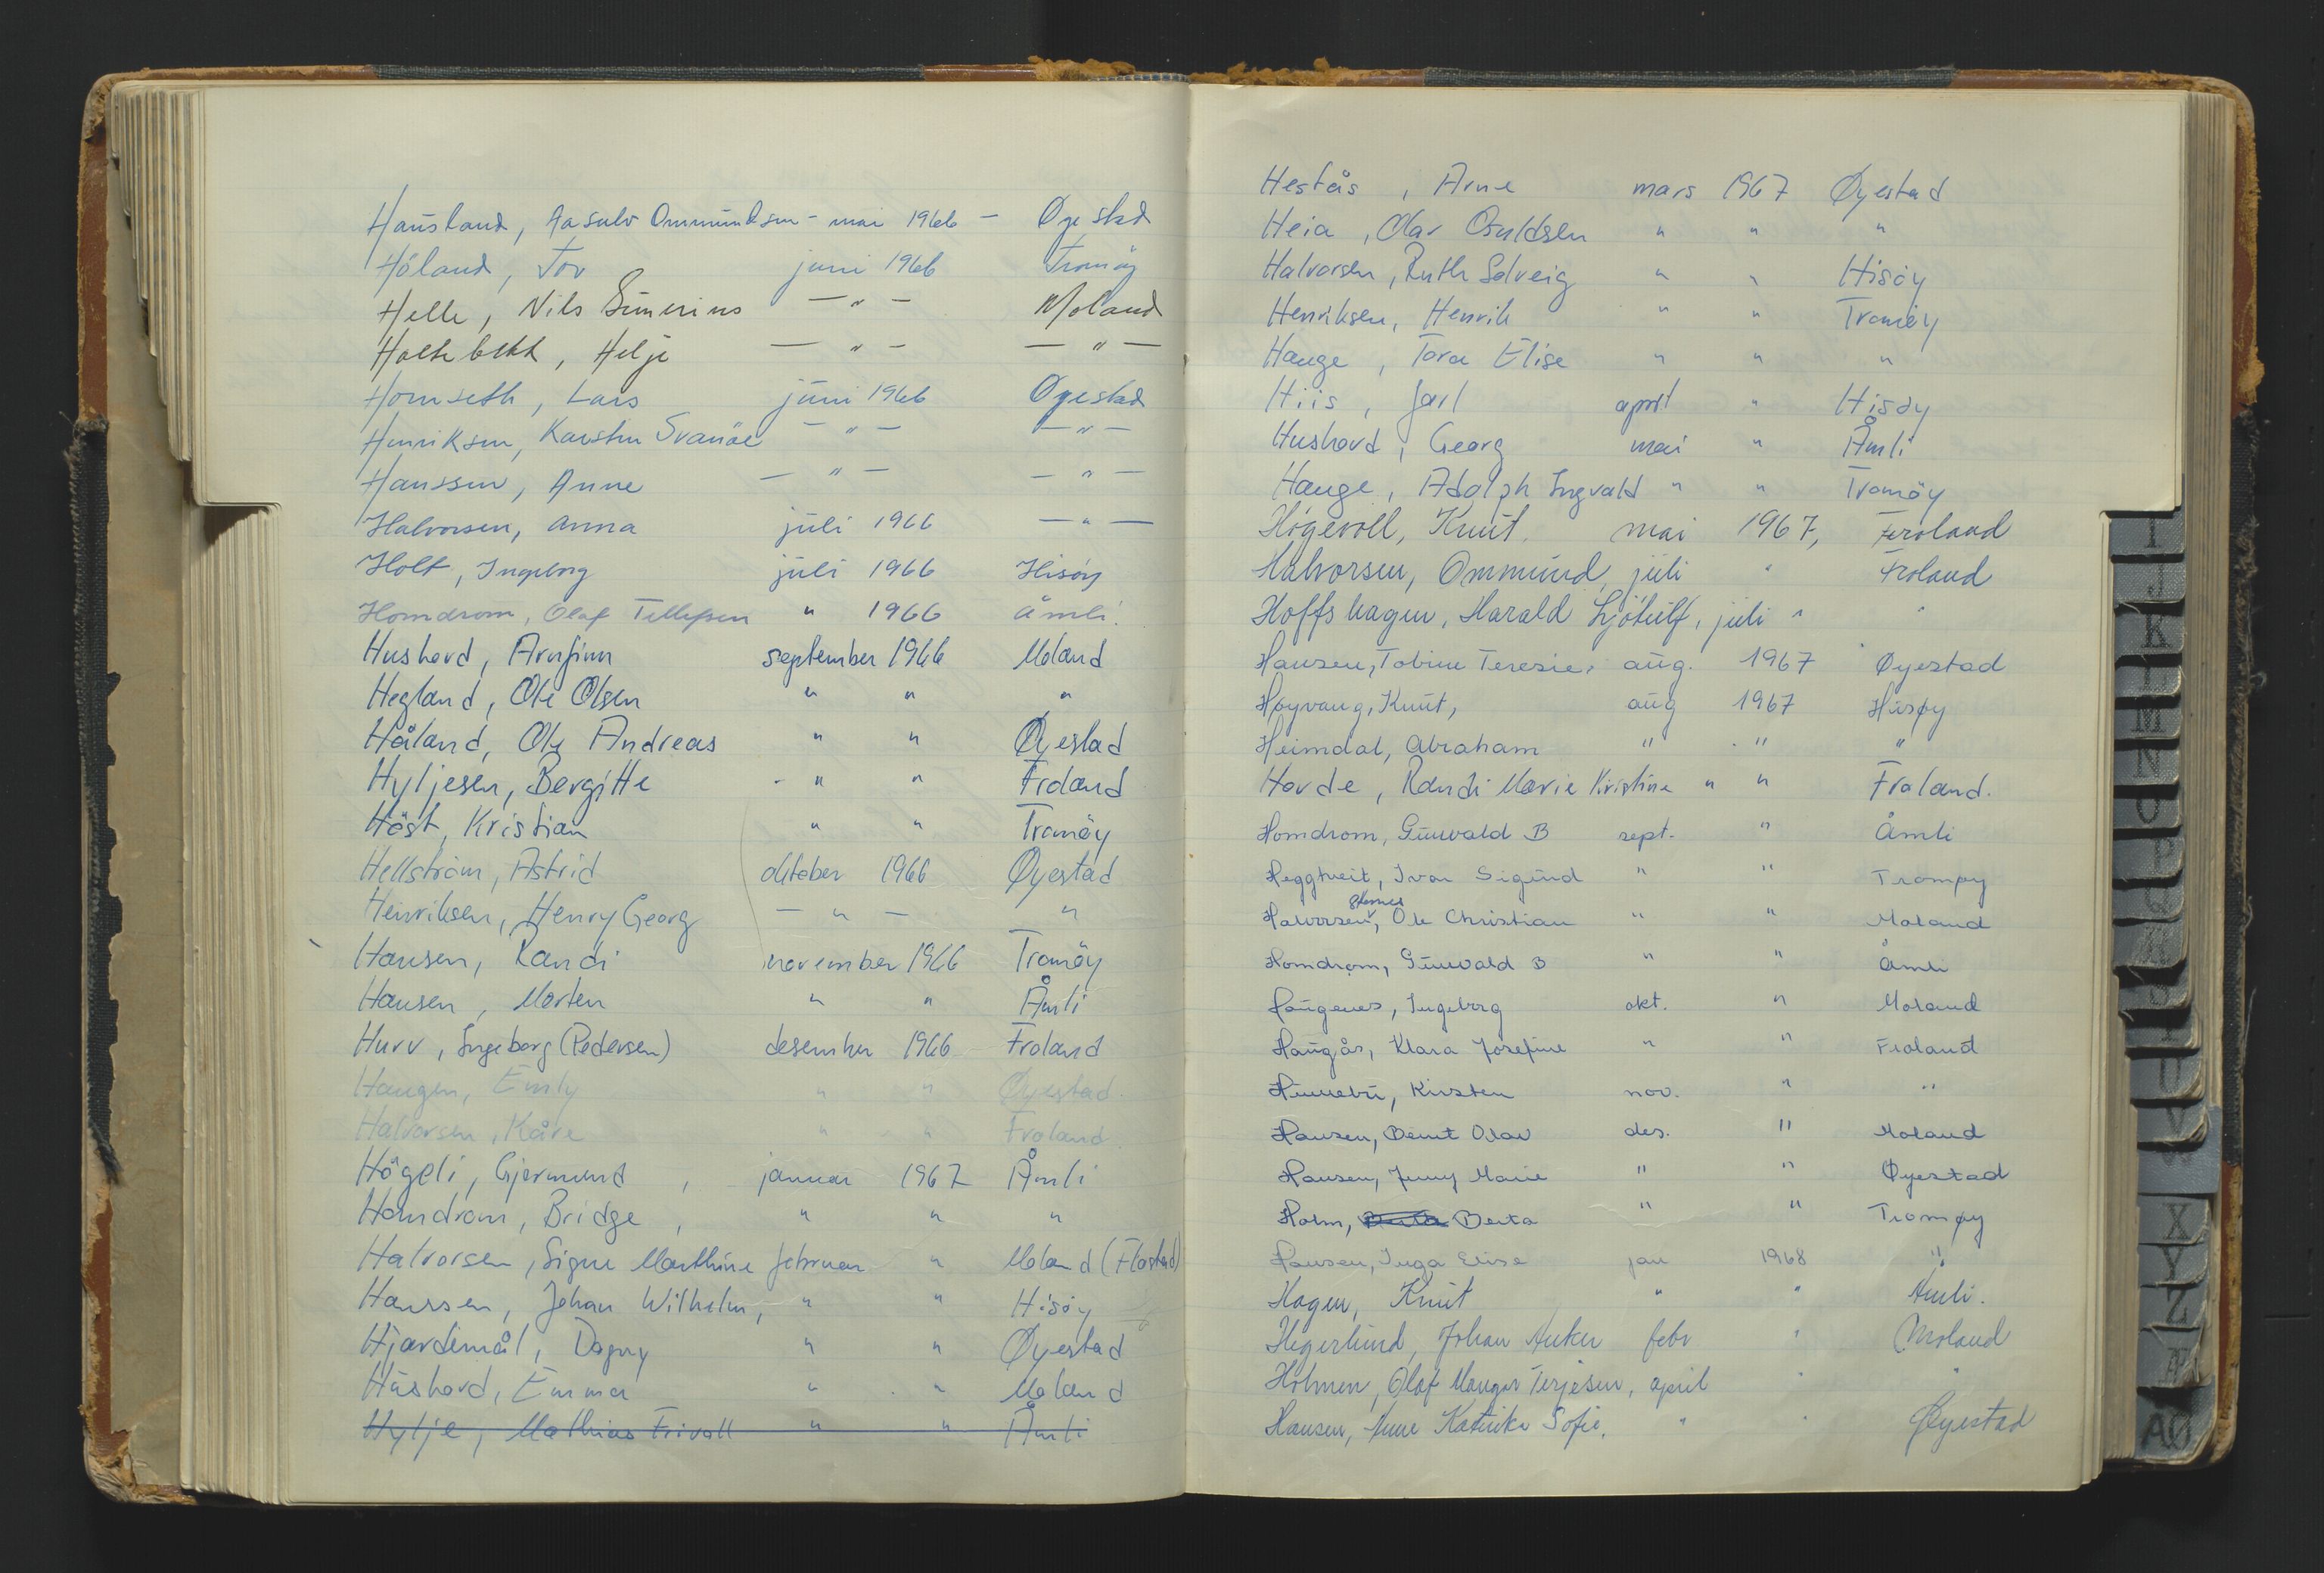 Hausland, Aasulv Ommundsen - mai 1966 - Øyestad
Höland, Tov juni 1966 Tromöy
Helle, Nils Severinus — " — Moland
Holtebekk, Helje — " — — " —
Homseth, Lars juni 1966 Øyestad
Henriksen, Karsten Svanöe — " — — " —
Hanssen, Anne — " — — " —
Halvorsen, Anna juli 1966 — " —
Holt, Ingeborg juli 1966 Hisöy
Homdrom, Olaf Tellefsen " 1966 Åmli.
Hushovd, Arnfinn september 1966 Moland
Hegland, Ole Olsen " " "
Håland, Ole Andreas " " Øyestad
Hyljesen, Bergitte " " Froland
Höst, Kristian " " Tromöy
Hellström, Astrid oktober 1966 Øyestad
Henriksen, Henry Georg — " — "
Hansen, Randi november 1966 Tromöy
Hansen, Morten " " Åmli
Hurv, Ingeborg (Pedersen) desember 1966 Froland
Haugen, Emly " " Øyestad.
Halvorsen, Kåre " " Froland.
Högeli, Gjermund, januar 1967 Åmli
Homdrom, Bridge, " " "
Halvorsen, Signe Marthine februar " Moland (Flostad)
Hanssen, Johan Wilhelm, " " Hisöy
Hjardemål, Dagny " " Øyestad
Hushovd, Emma " " Moland
Hylje, Mathias Frivoll " " Åmli
Hestås, Arne mars 1967 Øyestad
Heia, Olav Osuldsen " " "
Halvorsen, Ruth Solveig " " Hisöy
Henriksen, Henrik " " Tromöy
Hauge, Tora Elise " " "
Hiis, Jarl april " Hisöy
Hushovd, Georg mai " Åmli
Hauge, Adolph Ingvald " " Tromöy
Högevoll, Knut. mai 1967, Froland
Halvorsen, Ommund, juli " Froland
Hoffshagen, Harald Ljötulf, juli " "
Hansen, Tobine Teresie, aug. 1967 Øyestad
Høyvang, Knut, aug 1967 Hisøy
Heimdal, Abraham " " "
Hovde, Randi Marie Kristine " " Froland.
Homdrom, Gunvald B sept. " Åmli
Heggtveit, Ivar Sigurd " " Tromøy
Halvorsen, Ole Christian " " Moland
Homdrom, Gunvald B " " Åmli
Haugenes, Ingeborg okt. " Moland
Haugås, Klara Josefine " " Froland
Hunnebu, Kirsten nov. " "
Hansen, Berut Olav des. " Moland
Hansen, Jenny Marie " " Øyestad
Holm, Berta " " Tromøy
Hansen, Inga Elise jan 1968 "
Hagen, Knut " " Åmli.
Hegerlund, Johan Anker febr " Moland
Holmen, Olaf Mangor Terjesen, april " "
Hansen, Anne Katinka Sofie. " " Øyestad
I
J
K
L
M
N
O
P
Q
R
S
T
U
V
W
X
Y
Z
Æ
AØ